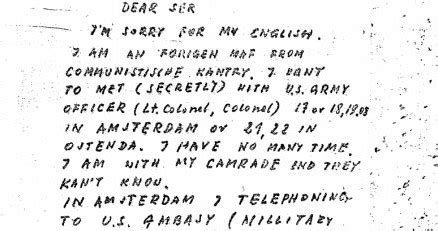 DEAR SER
I'M SORRY FOR MY ENGLISH.
I AM AN FORIGEN MAF FROM
COMMUNISTISCHE KANTRY. I VANT
TO MET (SECRETLY) WITH U.S. ARMY
OFFICER (Lt. Colonel, Colonel) 17 or 18,19.08
IN AMSTERDAM or 21,22 IN
OSTENDA. I HAVE NO MANY TIME.
I AM WITH MY CAMRADE END THEY
KAN'T KNOW.
IN AMSTERDAM I TELEPHONING
TO U.S. AMBASY (MILLITARY